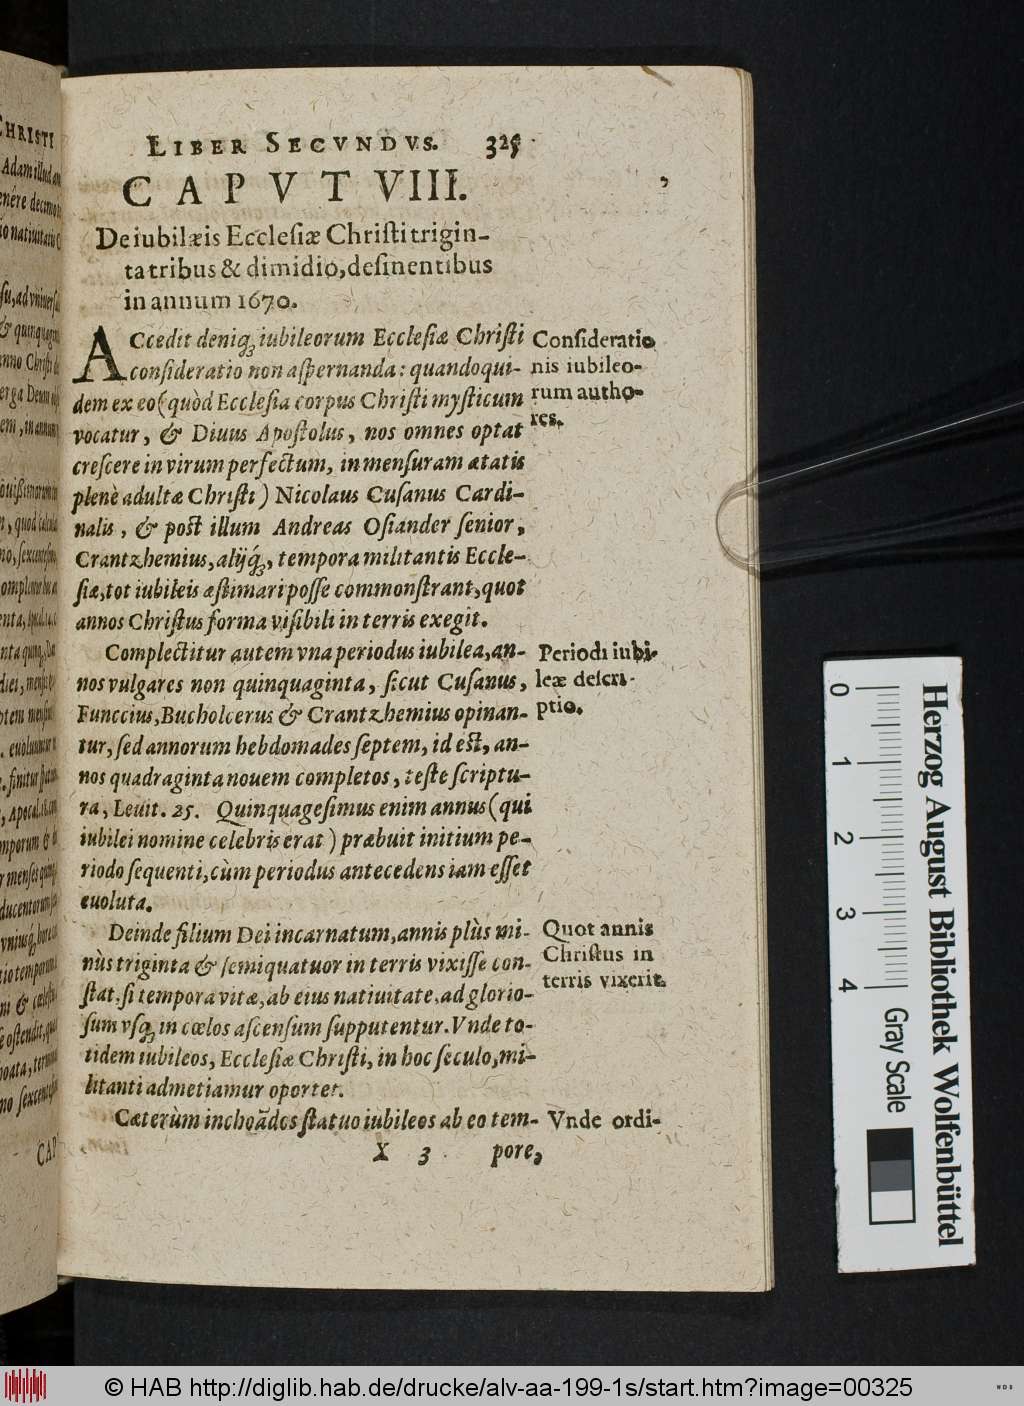 LIBER SECVNDVS. 325
CAPVT VIII.
De iubilæis Ecclesiæ Christi trigin-
ta tribus & dimidio, desinentibus
in annum 1670.
ACcedit deniq; iubileorum Ecclesiæ Christi
consideratio non aspernanda: quandoqui-
dem ex eo (quòd Ecclesia corpus Christi mysticum
vocatur, & Diuus Apostolus, nos omnes optat
crescere in virum perfectum, in mensuram ætatis
plenè adultæ Christi) Nicolaus Cusanus Cardi-
nalis, & post illum Andreas Osiander senior,
Crantzhemius, alijq́;, tempora militantis Eccle-
siæ, tot iubileis æstimari posse commonstrant, quot
annos Christus forma visibili in terris exegit.
Complectitur autem vna periodus iubilea, an-
nos vulgares non quinquaginta, sicut Cusanus,
Funccius, Bucholcerus & Crantzhemius opinan-
tur, sed annorum hebdomades septem, id est, an-
nos quadraginta nouem completos, teste scriptu-
ra, Leuit. 25. Quinquagesimus enim annus (qui
iubilei nomine celebris erat) præbuit initium pe-
riodo sequenti, cùm periodus antecedens iam esset
euoluta.
Deinde filium Dei incarnatum, annis plùs mi-
nùs triginta & semiquatuor in terris vixisse con-
stat, si tempora vitæ, ab eius natiuitate, ad glorio-
sum vsq; in cœlos ascensum supputentur. Vnde to-
tidem iubileos, Ecclesiæ Christi, in hoc seculo, mi-
litanti admetiamur oportet.
Cæterùm inchoãdos statuo iubileos ab eo tem-
X 3 pore,
Consideratio
nis iubileo-
rum autho-
res.
Periodi iubi-
leæ descri-
ptio.
Quot annis
Christus in
terris vixerit.
Vnde ordi-
CHRISTI
CAP
0 1 2 3 4
Herzog August Bibliothek Wolfenbüttel
Gray Scale
© HAB http://diglib.hab.de/drucke/alv-aa-199-1s/start.htm?image=00325